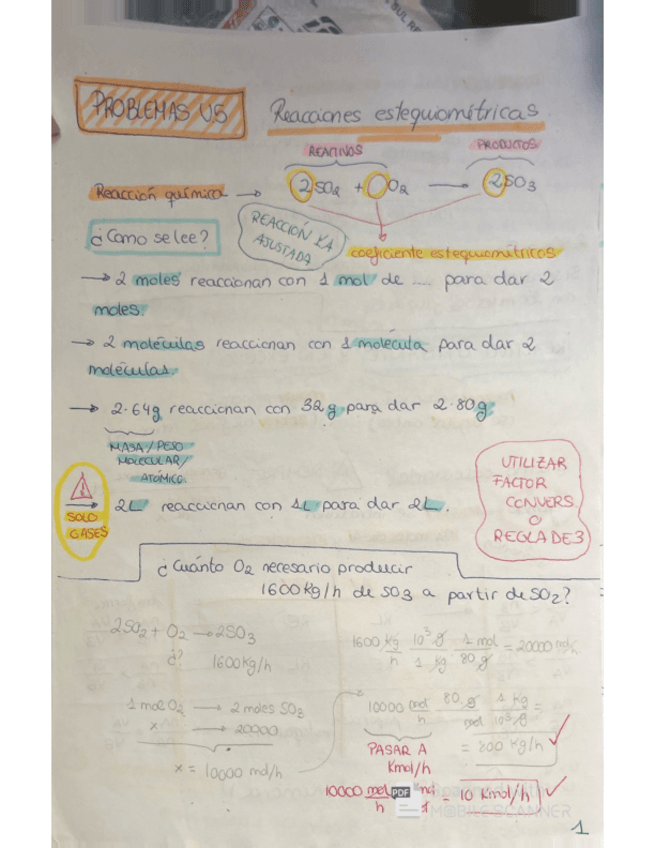 PROBLEMAS U.5 Reacciones estequiométricas.
REACTIVOS PRODUCTOS
Reacción química → 2SO2 + O2 → 2SO3
REACCIÓN YA
AJUSTADA
¿Como se lee?
coeficiente estequiométricos
→ 2 moles reaccionan con 1 mol de .... para dar 2
moles.
→ 2 moléculas reaccionan con 1 molécula para dar 2
moléculas.
→ 2·64g reaccionan con 32g para dar 2·80g
MASA/PESO
MOLECULAR/
ATÓMICO
UTILIZAR
FACTOR
CONVERS
O
REGLA DE 3
→ 2L reaccionan con 1L para dar 2L.
SOLO
GASES
¿Cuánto O2 necesario producir
1600kg/h de SO3 a partir de SO2?
2SO2 + O2 → 2SO3
¿? 1600kg/h
1600 kg/h 10³ g/1 kg 1 mol/80 g = 20000 mol/h
1 mol O2 → 2 moles SO3
x → 20000
x = 10000 mol/h
10000 mol/h 80 g/mol 1 kg/10³ g =
= 800 kg/h
PASAR A
Kmol/h
10000 mol/h = 10 Kmol/h
PDF
MOBILE SCANNER
1